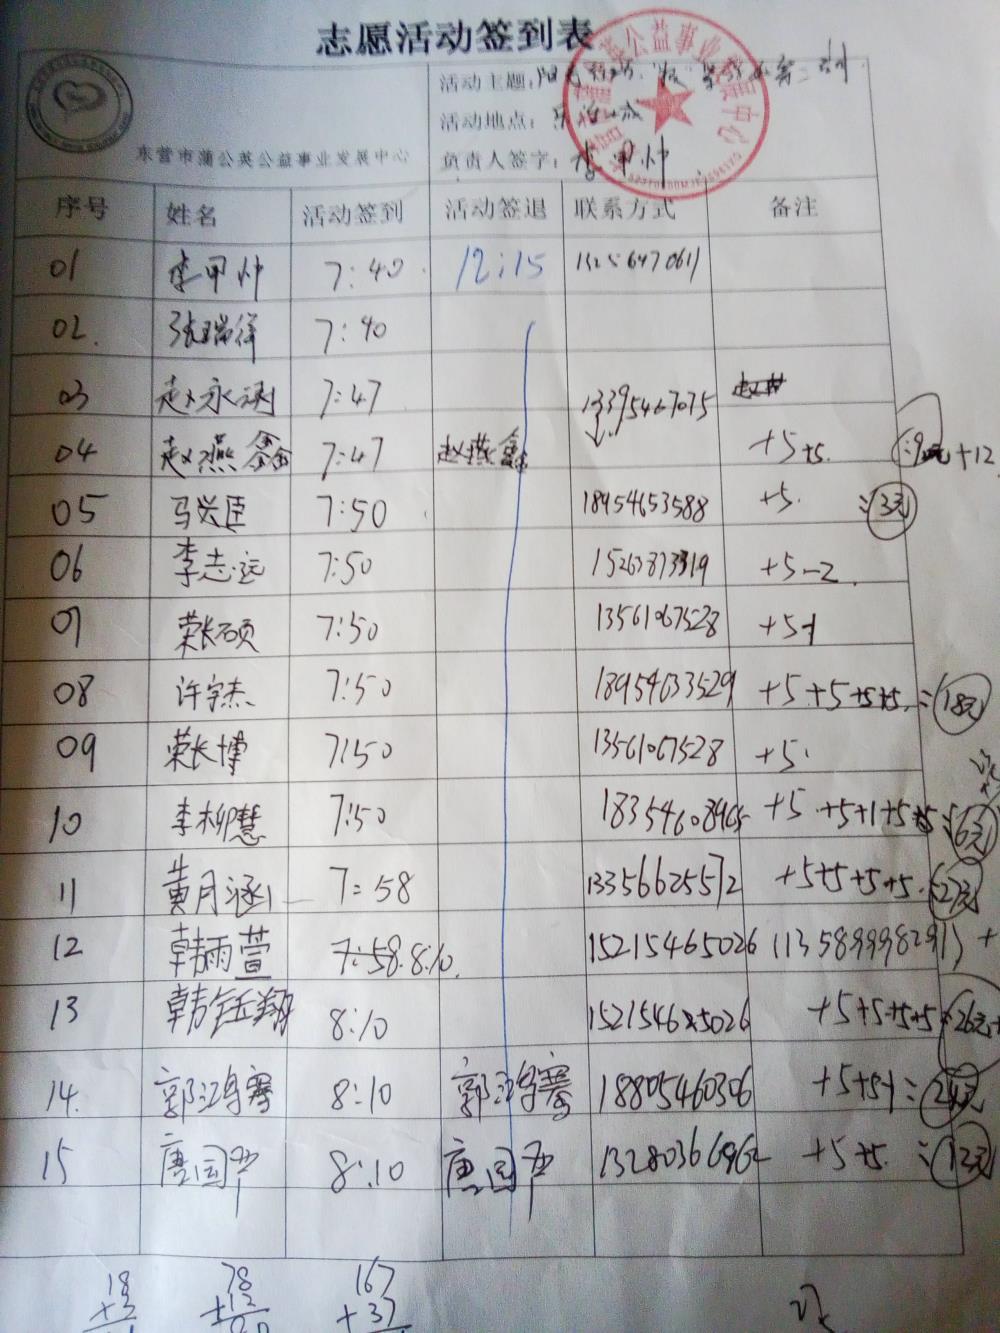 志愿活动签到表
活动主题:
活动地点:
东营市蒲公英公益事业发展中心
负责人签字: 李甲帅
序号 姓名 活动签到 活动签退 联系方式 备注
01 李甲帅 7:40 12:15 13256470611
02. 张瑞祥 7:40
03 赵永涵 7:47 13395467075
04 赵燕鑫 7:47 赵燕鑫 +5+5. +12
05 马兴臣 7:50 18954653588 +5. 3元
06 李志远 7:50 +5-2.
07 荣长硕 7:50 13561067528 +5-1
08 许宇杰 7:50 18954633529 +5+5+5+5. 18元
09 荣长博 7:50 13561067528 +5.
10 李柳慧 7:50 +5+5+1+5+5 6元
11 黄月涵 7:58 13356625572 +5+5+5+5. 27元
12 韩雨萱 7:58.8:10. 15215465026 (13589998291) +
13 韩钰翔 8:10 +5+5+5+5 26元+
14. 郭鸿骞 8:10 郭鸿骞 18805460306 +5+5-1 24元
15 唐国 8:10 唐国 +5+5. 12元
18 78 167
+12 +37